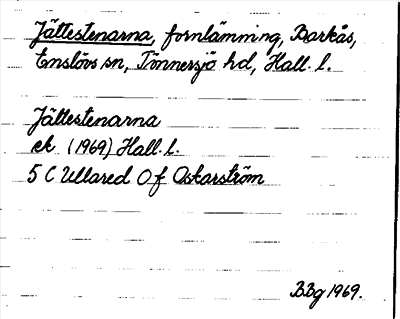 Jättestenarna, fornlämning, Barkås,
Enslövs sn, Tönnersjö hd, Hall. l.
Jättestenarna
ek. (1969) Hall. l.
5 C Ullared O f Oskarström
BBg 1969.